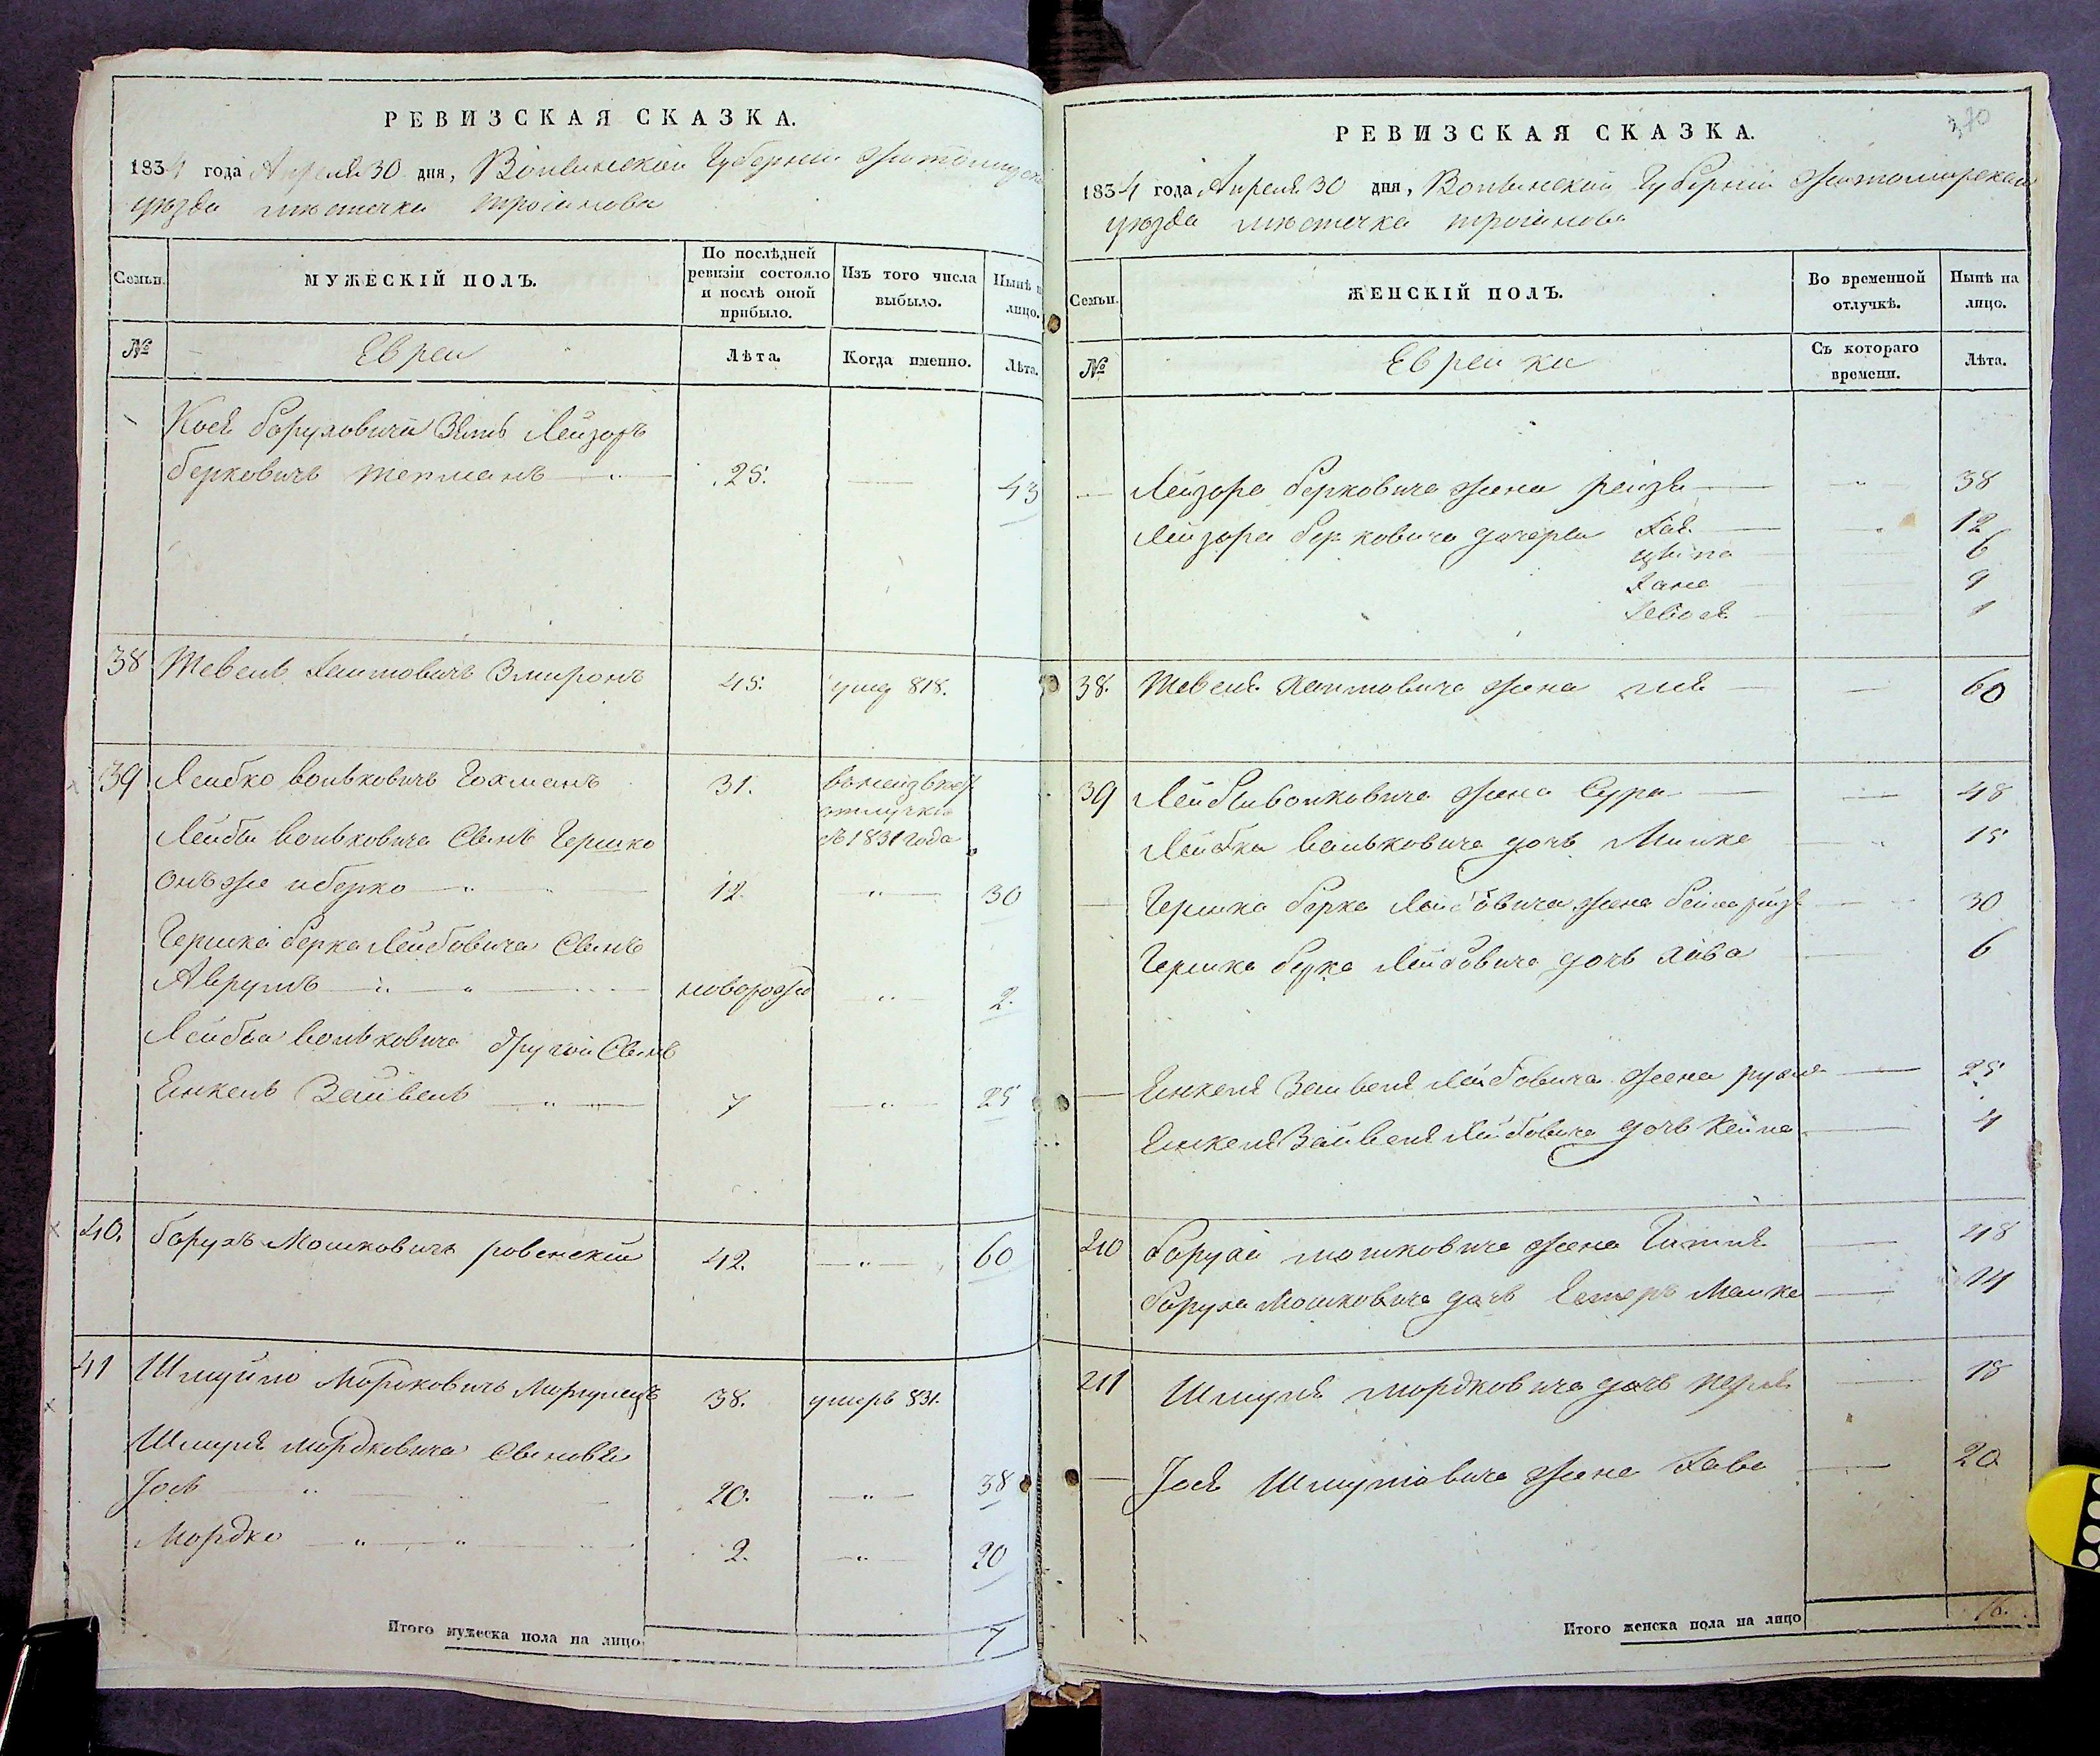 РЕВИЗСКАЯ СКАЗКА.
1834 года Апреля 30 дня, Волынской Губерніи Житомирска
уѣзда мѣстечка Троянова
Семьи.
МУЖЕСКІЙ ПОЛЪ.
По послѣдней ревизіи состояло и послѣ оной прибыло.
Изъ того числа выбыло.
Нынѣ на лицо.
№
Евреи
Лѣта.
Когда именно.
Лѣта.
Боруховича Зять Лейзоръ
Берковичъ 25. 43
38 Тевель 45. умер 818.
39 Лейбко Вольковичъ Гохманъ 31.
отлучки
съ 1831 года
Лейбы Вольковича Сынъ Гершко
онъ же и Берко 12. 30
Гершка Берка Лейбовича Сынъ
Аврумъ новорожд 2.
Лейбы Вольковича другой Сынъ
Енкель Зейвель 7 25
40. Борухъ Мошковичъ ровенскій 42. 60
41 Шмуйло Мордковичъ 38. умеръ 831.
Шмуля Мордковича Сыновья
Іось 20. 38
Мордко 2. 20
Итого мужеска пола на лицо 7
370
РЕВИЗСКАЯ СКАЗКА.
1834 года Апреля 30 дня, Волынской Губерніи Житомирскаго
уѣзда мѣстечка Троянова
Семьи.
ЖЕНСКІЙ ПОЛЪ.
Во временной отлучкѣ.
Нынѣ на лицо.
№
Еврейки
Съ котораго времени.
Лѣта.
Лейзора Берковича жена рейзя 38
Лейзора Берковича дочери Хая 12
6
Хана 9
1
38. Тевеля жена 60
39 Лейбы Вольковича жена Сура 48
Лейбка Вольковича дочь 15
Гершка Берка Лейбовича жена 30
Гершка Берка Лейбовича дочь Хава 6
Енкеля Зейвеля Лейбовича жена 25
Енкеля Зейвеля Лейбовича дочь 4
40 Боруха мошковича жена Гитля 48
Боруха Мошковича дочь Естеръ Малка 14
41 Шмуля мордковича дочь перля 18
Іося Шмулiовича жена Хава 20
Итого женска пола на лицо 16.